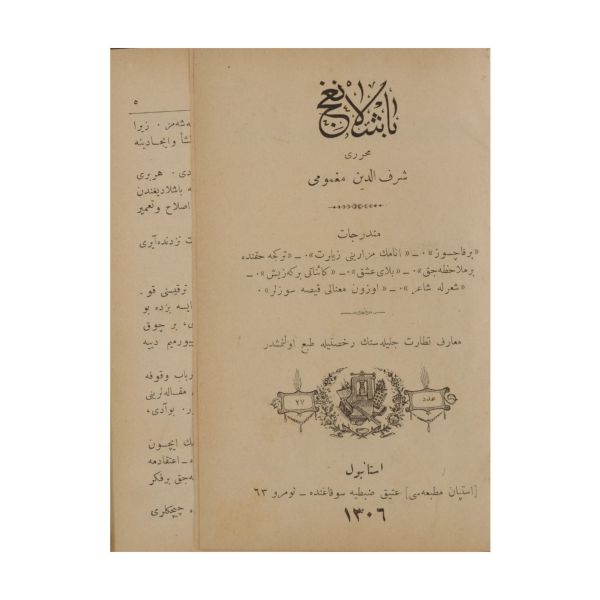 باشلانغج
محرری
شرف الدین مغمومی
مندرجات
«برقاچسوز» ۰ ـ «انامك مزارینی زیارت» ۰ ـ «تركجه حقنده
برملاحظه‌جق» ۰ ـ «بلای عشق» ۰ ـ «كائناتی بركه‌زیش» ۰ ـ
«شعرله شاعر» ۰ ـ «اوزون معنالی قیصه سوزلر» ۰
معارف نظارت جلیله‌سنك رخصتیله طبع اولنمشدر
عدد
٢٧
استانبول
[استپان مطبعه‌سی] عتیق ضبطیه سوقاغنده ـ نومرو ٦٣
١٣٠٦
٥
ـه‌شه‌مز . زیرا
ـشأ وایجادینه
ـدی . هربری
ـه باشلادیغندن
اصلاح وتعمیر
ـت نزدنده‌آیری
ترقیسنی قو ـ
ـایسه بزده بو
ـی، بر چوق
ـیورمیم دییه
ـرباب وقوفه
مقاله‌لرینی
ـر. بوآدی،
ـك ایچون
ـه ـ اعتقادمه
ـه‌جق برفكر
ـه چیچكلری